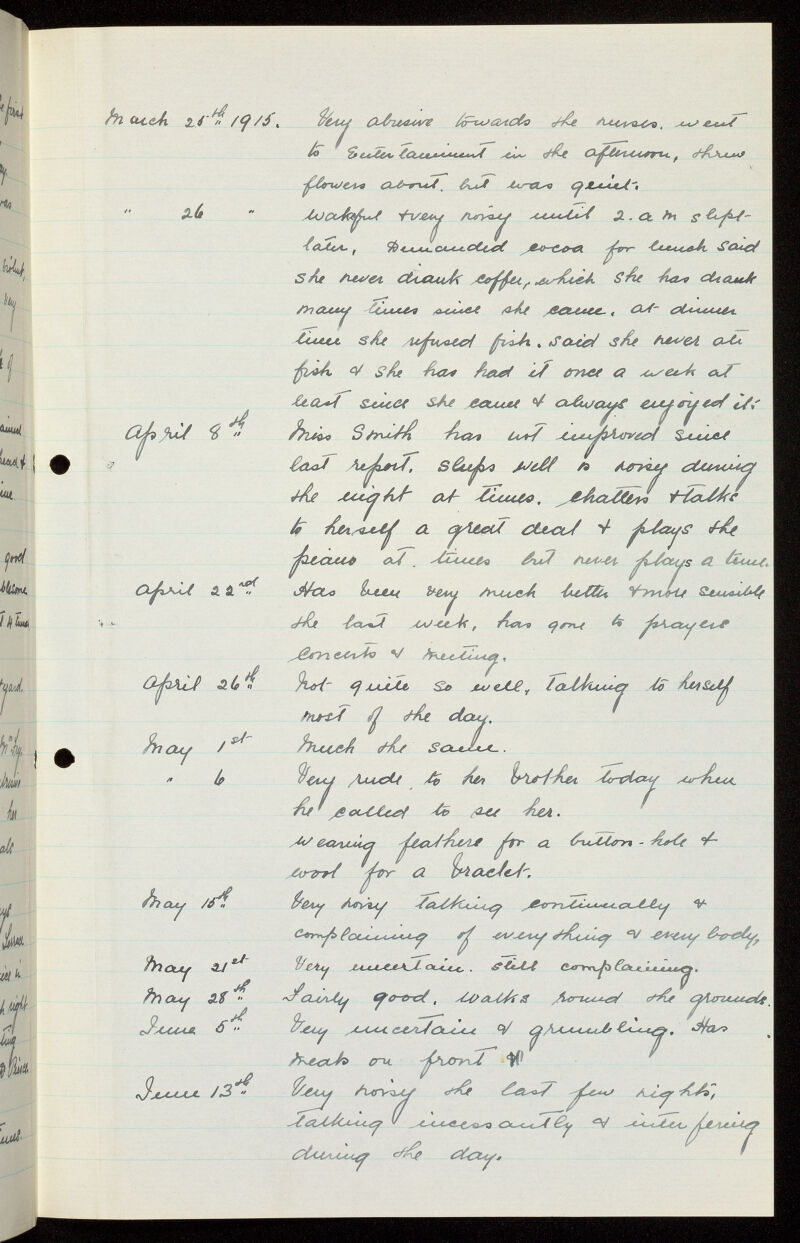 March 25th 1915. Very abusive towards the nurses. went
to Entertainment in the afternoon, threw
flowers about. but was quiet.
" 26 " wakeful & very noisy until 2. a m slept
later, Demanded cocoa for lunch said
she never drank coffee, which she has drank
many times since she came. at dinner
time she refused fish. said she never ate
fish & she has had it once a week at
least since she came & always enjoyed it.
April 8th Miss Smith has not improved since
last report. sleeps well is noisy during
the night at times. chatters & talks
to herself a great deal & plays the
piano at times but never plays a tune.
April 22nd Has been very much better & more sensible
the last week, has gone to prayers
concerts & meeting.
April 26th Not quite so well, talking to herself
most of the day.
May 1st Much the same.
" 6 Very rude to her brother today when
he called to see her.
wearing feathers for a button-hole &
wool for a braclet.
May 15th Very noisy talking continually &
complaining of everything & everybody,
May 21st Very uncertain. still complaining.
May 28th Fairly good. walks round the grounds.
June 5th Very uncertain & grumbling. Has
meals on front
June 13th Very noisy the last few nights,
talking incessantly & interfering
during the day.